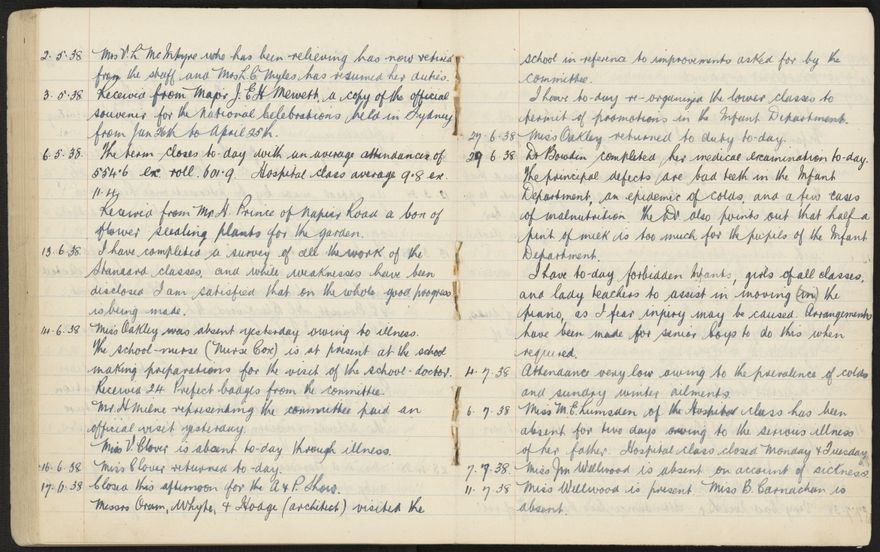 2. 5. 38 Mrs V. L. McIntyre who has been relieving has now retired
from the staff and Mrs L. C. Myles has resumed her duties.
3. 5. 38 Received from Major J. E. H. Mewett, a copy of the official
souvenir for the National Celebrations held in Sydney
from Jan 26th to April 25th.
6. 5. 38 The term closes to-day with an average attendances of
554.6 ex roll. 601.9. Hospital class average 9.8 ex.
11.4
Received from Mr H. Prince of Napier Road a box of
flower seedling plants for the garden.
13. 6. 38 I have completed a survey of all the work of the
Standard classes, and while weaknesses have been
disclosed I am satisfied that on the whole good progress
is being made.
14. 6. 38 Miss Oakley was absent yesterday owing to illness.
The school-nurse (Nurse Cox) is at present at the school
making preparations for the visit of the school-doctor.
Received 24 Prefect badges from the committee.
Mr. H. Milne representing the committee paid an
official visit yesterday.
Miss V. Clover is absent to-day through illness.
16. 6. 38 Miss Clover returned to-day.
17. 6. 38 Closed this afternoon for the A & P. Show.
Messrs Oram, Whyte, & Hodge (architect) visited the
school in reference to improvements asked for by the
committee.
I have to-day re-organised the lower classes to
permit of promotions in the Infant Department.
27. 6. 38 Miss Oakley returned to duty to-day.
29 6. 38 Dr Bowdin completed her medical examination to-day.
The principal defects are bad teeth in the Infant
Department, an epidemic of colds, and a few cases
of malnutrition. The Dr also points out that half a
pint of milk is too much for the pupils of the Infant
Department.
I have to-day forbidden Infants, girls of all classes,
and lady teachers to assist in moving the
piano, as I fear injury may be caused. Arrangements
have been made for senior boys to do this when
required.
4. 7. 38 Attendance very low owing to the prevalence of colds
and sundry winter ailments.
6. 7. 38 Miss M. E. Lumsden of the Hospital class has been
absent for two days owing to the serious illness
of her father. Hospital class closed Monday & Tuesday.
7. 7. 38 Miss Jm Wellwood is absent on account of sickness.
11. 7. 38 Miss Wellwood is present. Miss B. Carnachan is
absent.